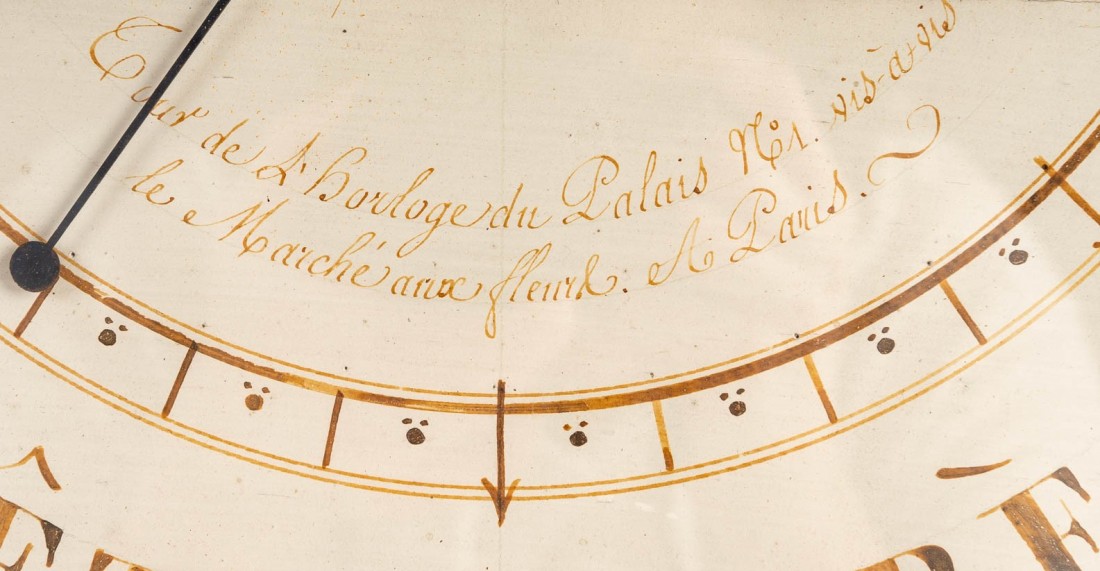 Tour de L'horloge du Palais N.º 1. vis-à-vis
le Marché aux fleurs. A Paris.